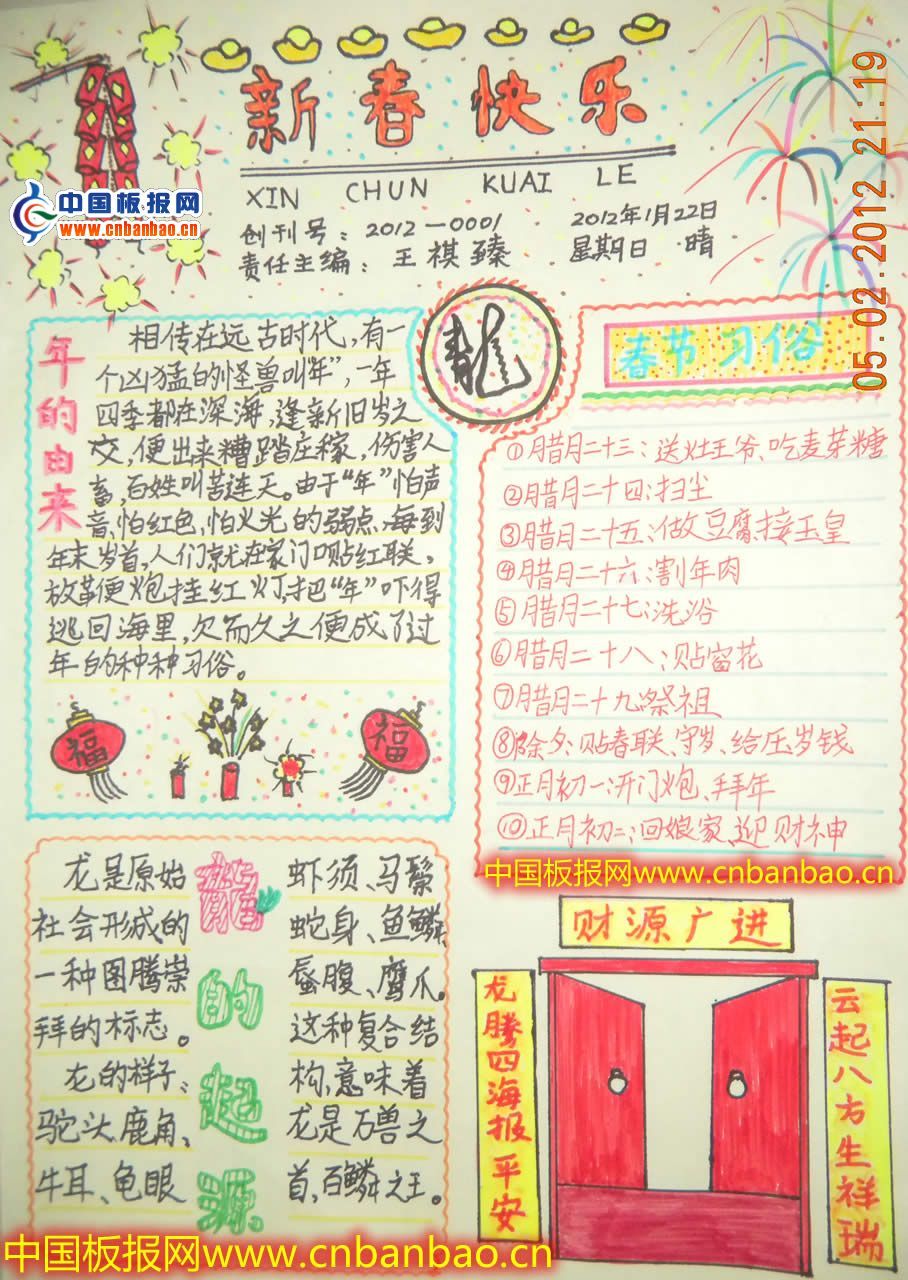 新春快乐
XIN CHUN KUAI LE
创刊号：2012—0001
2012年1月22日
责任主编：王祺臻
星期日 晴
中国板报网
www.cnbanbao.cn
05.02.2012 21:19
年的由来
相传在远古时代，有一
个凶猛的怪兽叫“年”，一年
四季都在深海，逢新旧岁之
交，便出来糟踏庄稼，伤害人
畜，百姓叫苦连天。由于“年”怕声
音，怕红色，怕火光的弱点，每到
年末岁首，人们就在家门口贴红联，
放革便炮挂红灯，把“年”吓得
逃回海里，欠而久之便成了过
年的种种习俗。
福
福
龍
春节习俗
①月腊月二十三：送灶王爷、吃麦芽糖
②月腊月二十四：扫尘
③月腊月二十五：做豆腐、接玉皇
④月腊月二十六：割年肉
⑤月腊月二十七：洗浴
⑥月腊月二十八：贴窗花
⑦月腊月二十九：祭祖
⑧除夕：贴春联、守岁、给压岁钱
⑨正月初一：开门炮、拜年
⑩正月初二：回娘家、迎财神
中国板报网www.cnbanbao.cn
龍的起源
龙是原始
社会形成的
一种图腾崇
拜的标志。
龙的样子：
驼头、鹿角、
牛耳、龟眼
虾须、马鬃
蛇身、鱼鳞、
蜃腹、鹰爪。
这种复合结
构，意味着
龙是百兽之
首，百鳞之王。
财源广进
龙腾四海报平安
云起八方生祥瑞
中国板报网www.cnbanbao.cn